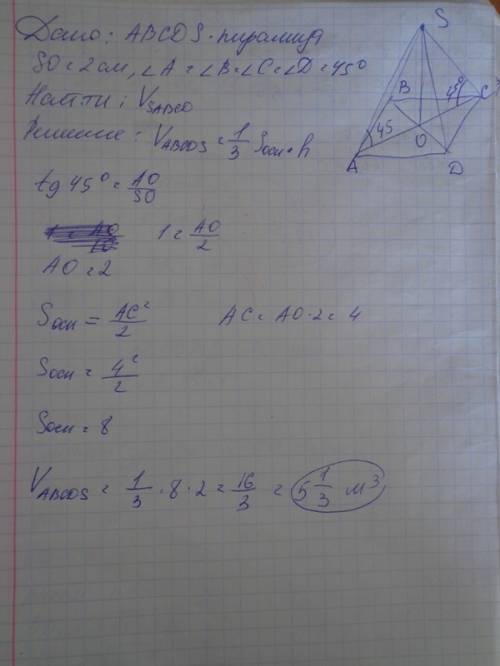 Дано: ABCDS - пирамида
SO = 2 см, ∠A = ∠B = ∠C = ∠D = 45°
Найти: V_SABCD
Решение: V_ABCDS = 1/3 Sосн · h
tg 45° = AO/SO
1 = AO/2
AO = 2
Sосн = AC²/2 AC = AO · 2 = 4
Sосн = 4²/2
Sосн = 8
V_ABCDS = 1/3 · 8 · 2 = 16/3 = 5 1/3 м³
S
B
45°
C
45
O
A
D